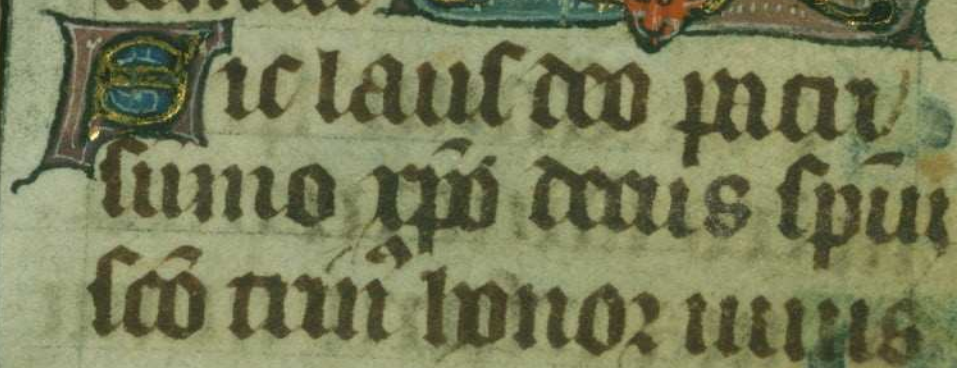 Sit laus deo patri
sumo xp̄o decus spūi
sc̄o trinꝰ honor unus